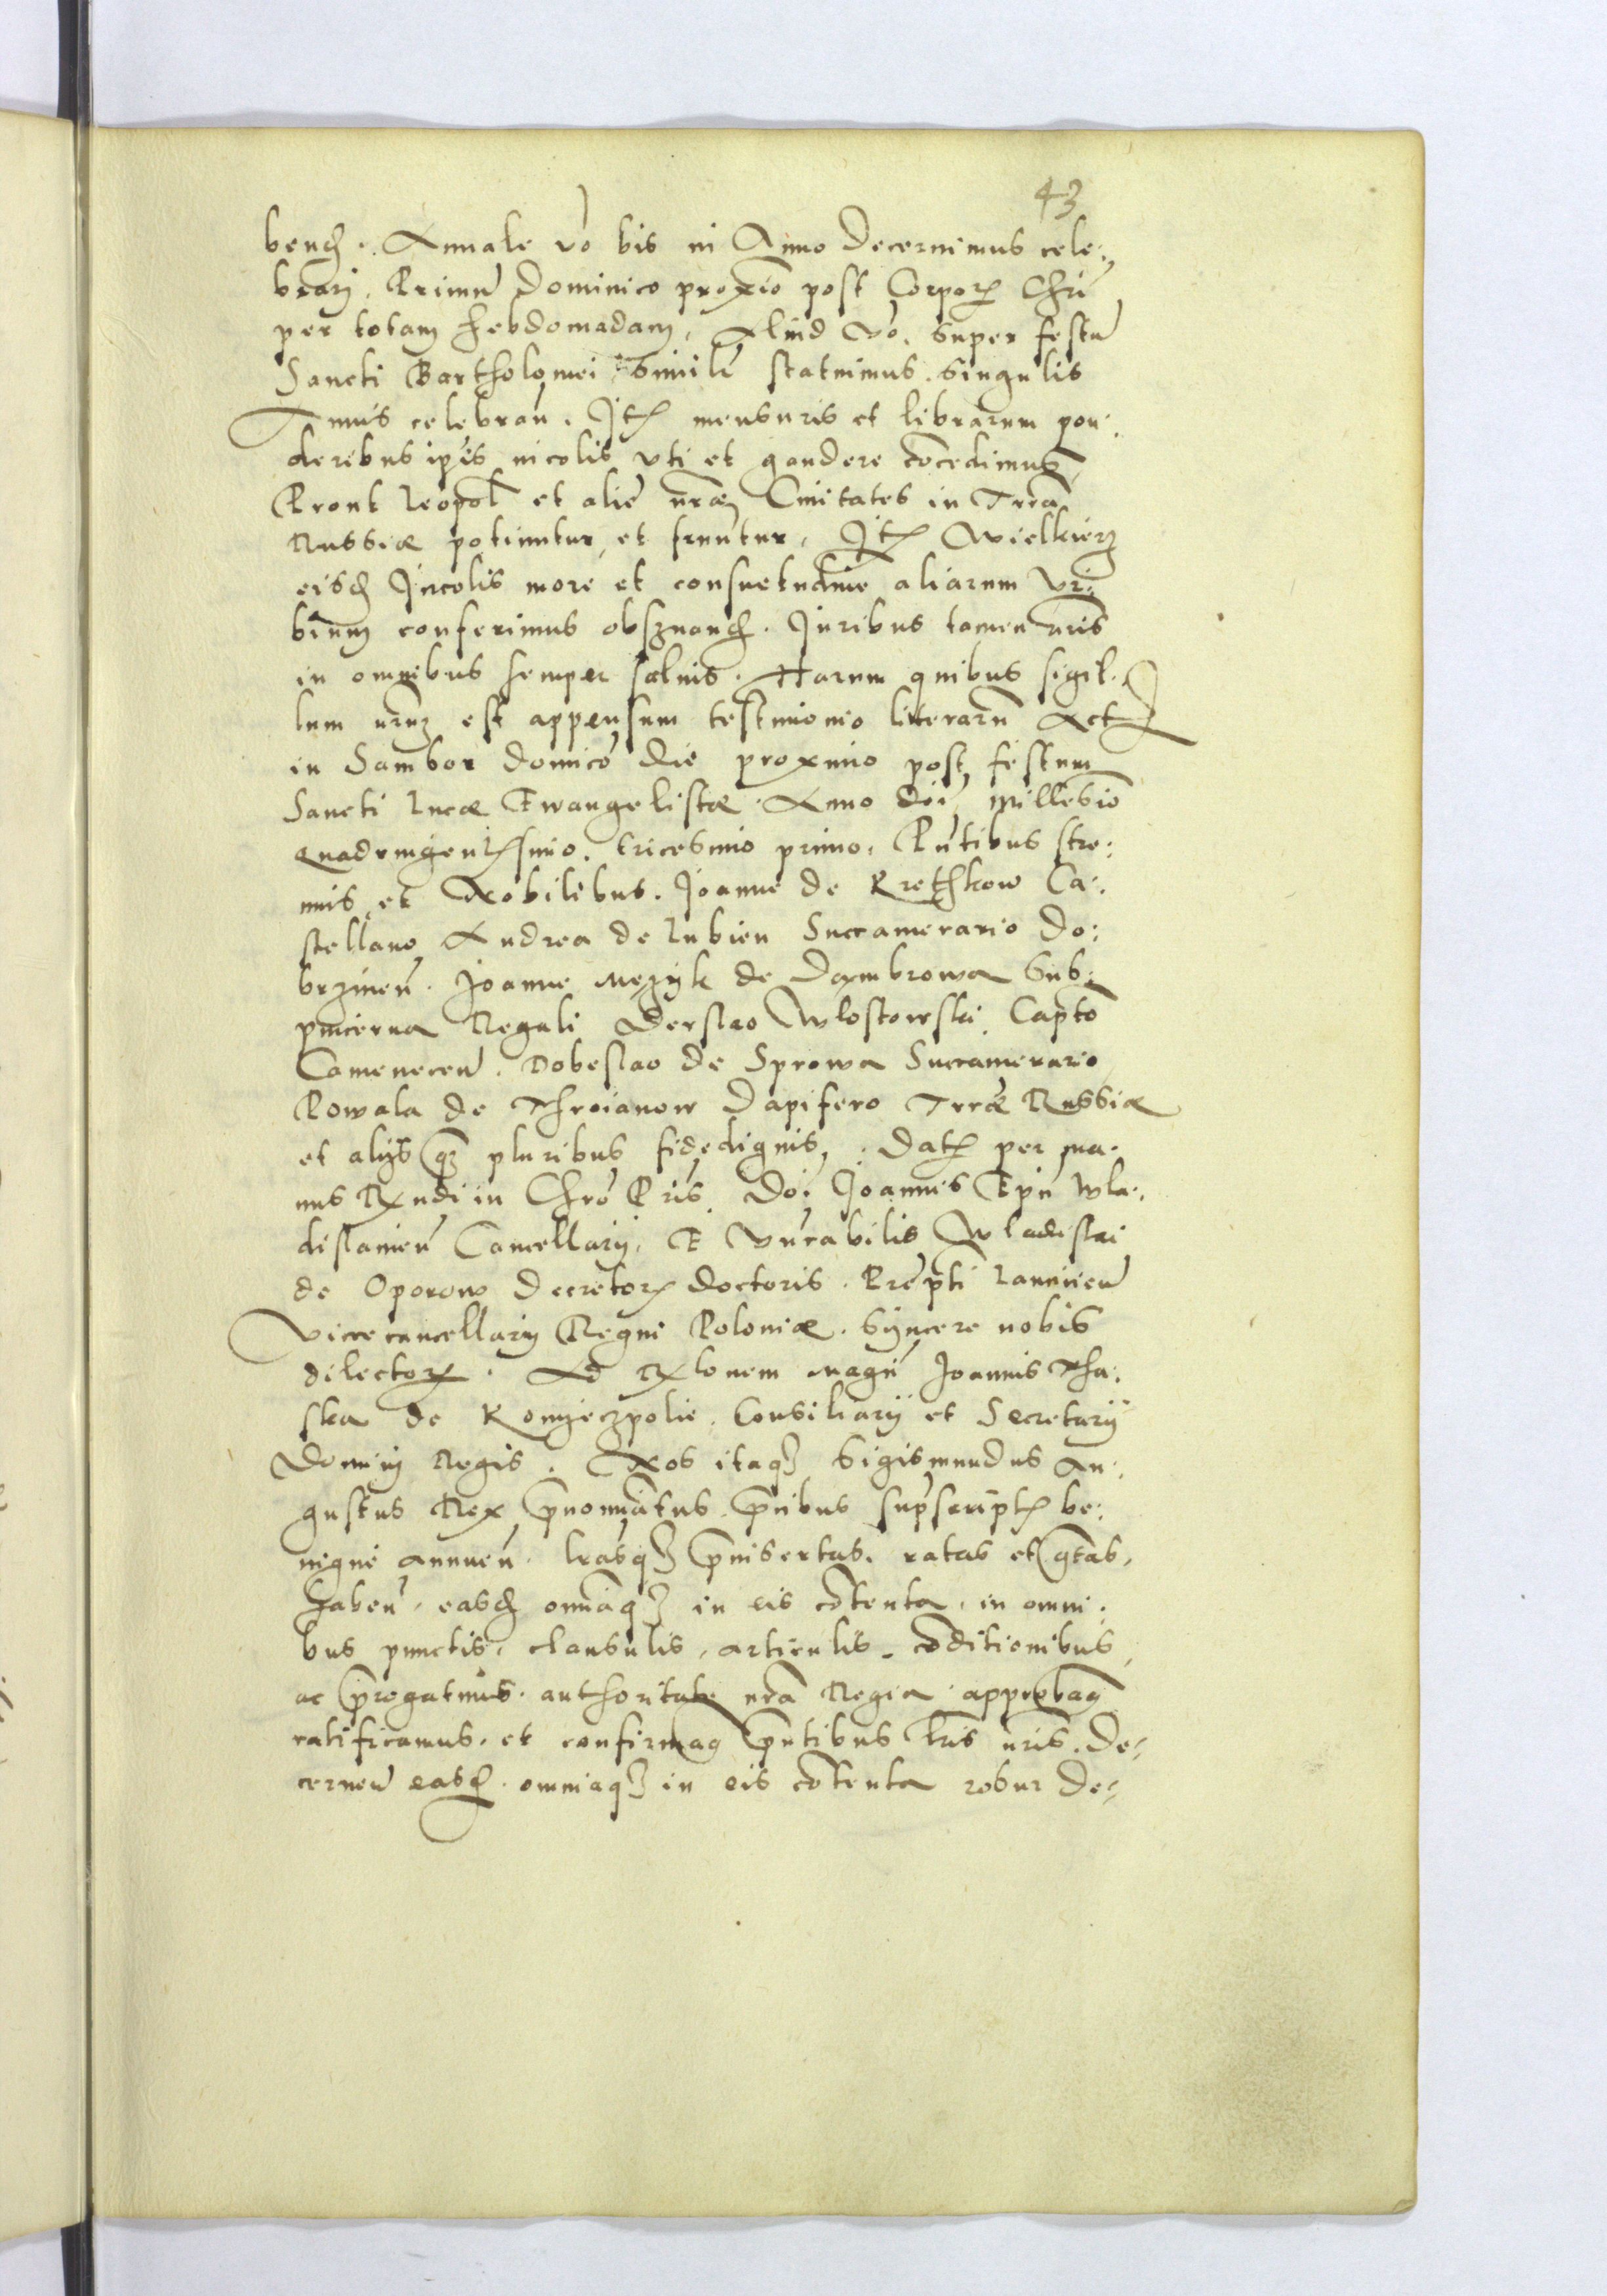 43
bend. Annale vo bis in Anno decernimus cele:
brari, Primu Dominico proxio post Corporis Chri
per totam hebdomadam, Aliud vo, super festu
Sancti Bartholomei simile statuimus. singulis
Annis celebran. Item mensuris et librarum pon:
deribus ipis incolis vti et gaudere cocedimus
Prout Leopol et alie nræ Ciuitates in Trra
Russiæ potiuntur, et fruuntur, Item Wielkierz
eisd Incolis more et consuetudine aliarum Vr:
bium conferimus obseruand. Juribus tamen nris
in omnibus semper saluis. Harum quibus sigil:
lum nrum est appensum testimonio literaru Act
in Sambor domico die proximo post festum
Sancti Lucæ Ewangelistæ. Anno doi millesio
quadringentesimo, tricesimo primo, Pntibus stre:
nuis et Nobilibus. Joanne de Krethkow Ca:
stellano Andrea de Lubien Succamerario Do:
brzinen. Joanne Mezyk de Dambrowa Sub:
pincerna Regali Derslao Wlostowski, Capto
Camenecen. Dobeslao de Sprowa Succamerario
Powala de Throianow Dapifero Trræ Russiæ
et alijs pluribus fidedignis, Dat per ma:
nus Rndi in Chro Pris, Doi Joannis Epi Wla:
dislauien Cancellarij, E Vnrabilis Wladislai
de Oporow Decretor doctoris. Prepti Lanciien
Vicecancellarij Regni Poloniæ. Syncere nobis
dilector. Ad Rlonem Magci Joannis Tha:
ska de Konyeczpolie, Consiliarij et Secretarij
Dominj Regis. Nos itaq Sigismundus Au:
gustus Rex pnominatus. pcibus supscript be:
nigne annuen. lrasq pinsertas. ratas et gtas,
haben, easd omniaq in eis cotenta, in omni:
bus punctis, clausulis, articulis, coditionibus
ac progatiuis. authoritate nra Regia approbam
ratificamus. et confirmaq pntibus lris nris. De:
cernen easd. omniaq in eis cotenta robur de: